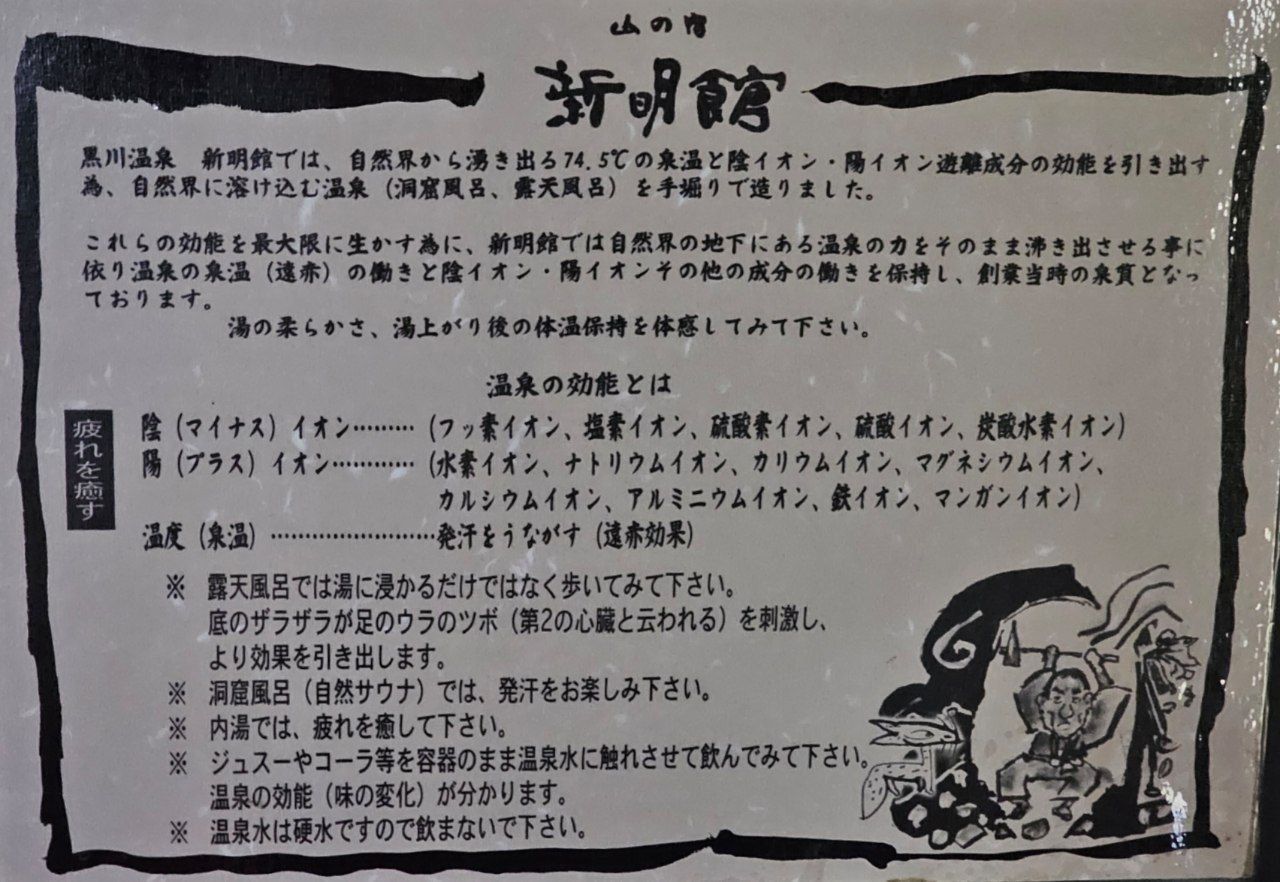 山の宿
新明館
黒川温泉　新明館では、自然界から湧き出る74.5℃の泉温と陰イオン・陽イオン遊離成分の効能を引き出す
為、自然界に溶け込む温泉（洞窟風呂、露天風呂）を手堀りで造りました。
これらの効能を最大限に生かす為に、新明館では自然界の地下にある温泉の力をそのまま沸き出させる事に
依り温泉の泉温（遠赤）の働きと陰イオン・陽イオンその他の成分の働きを保持し、創業当時の泉質となっ
ております。
湯の柔らかさ、湯上がり後の体温保持を体感してみて下さい。
温泉の効能とは
疲れを癒す
陰（マイナス）イオン………（フッ素イオン、塩素イオン、硫酸素イオン、硫酸イオン、炭酸水素イオン）
陽（プラス）イオン…………（水素イオン、ナトリウムイオン、カリウムイオン、マグネシウムイオン、
カルシウムイオン、アルミニウムイオン、鉄イオン、マンガンイオン）
温度（泉温）……………………発汗をうながす（遠赤効果）
※　露天風呂では湯に浸かるだけではなく歩いてみて下さい。
底のザラザラが足のウラのツボ（第2の心臓と云われる）を刺激し、
より効果を引き出します。
※　洞窟風呂（自然サウナ）では、発汗をお楽しみ下さい。
※　内湯では、疲れを癒して下さい。
※　ジュスーやコーラ等を容器のまま温泉水に触れさせて飲んでみて下さい。
温泉の効能（味の変化）が分かります。
※　温泉水は硬水ですので飲まないで下さい。